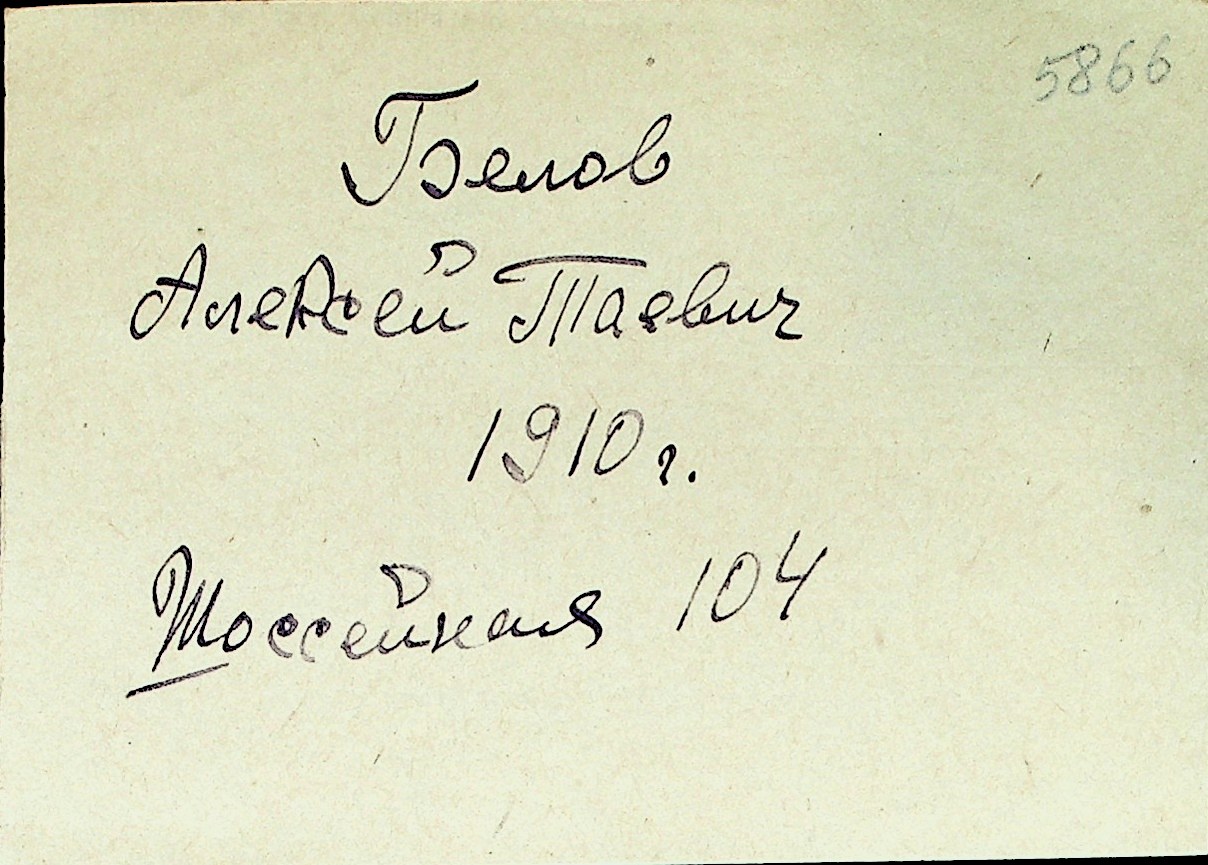 5866
Белов
Алексей Таевич
1910 г.
Шоссейная 104